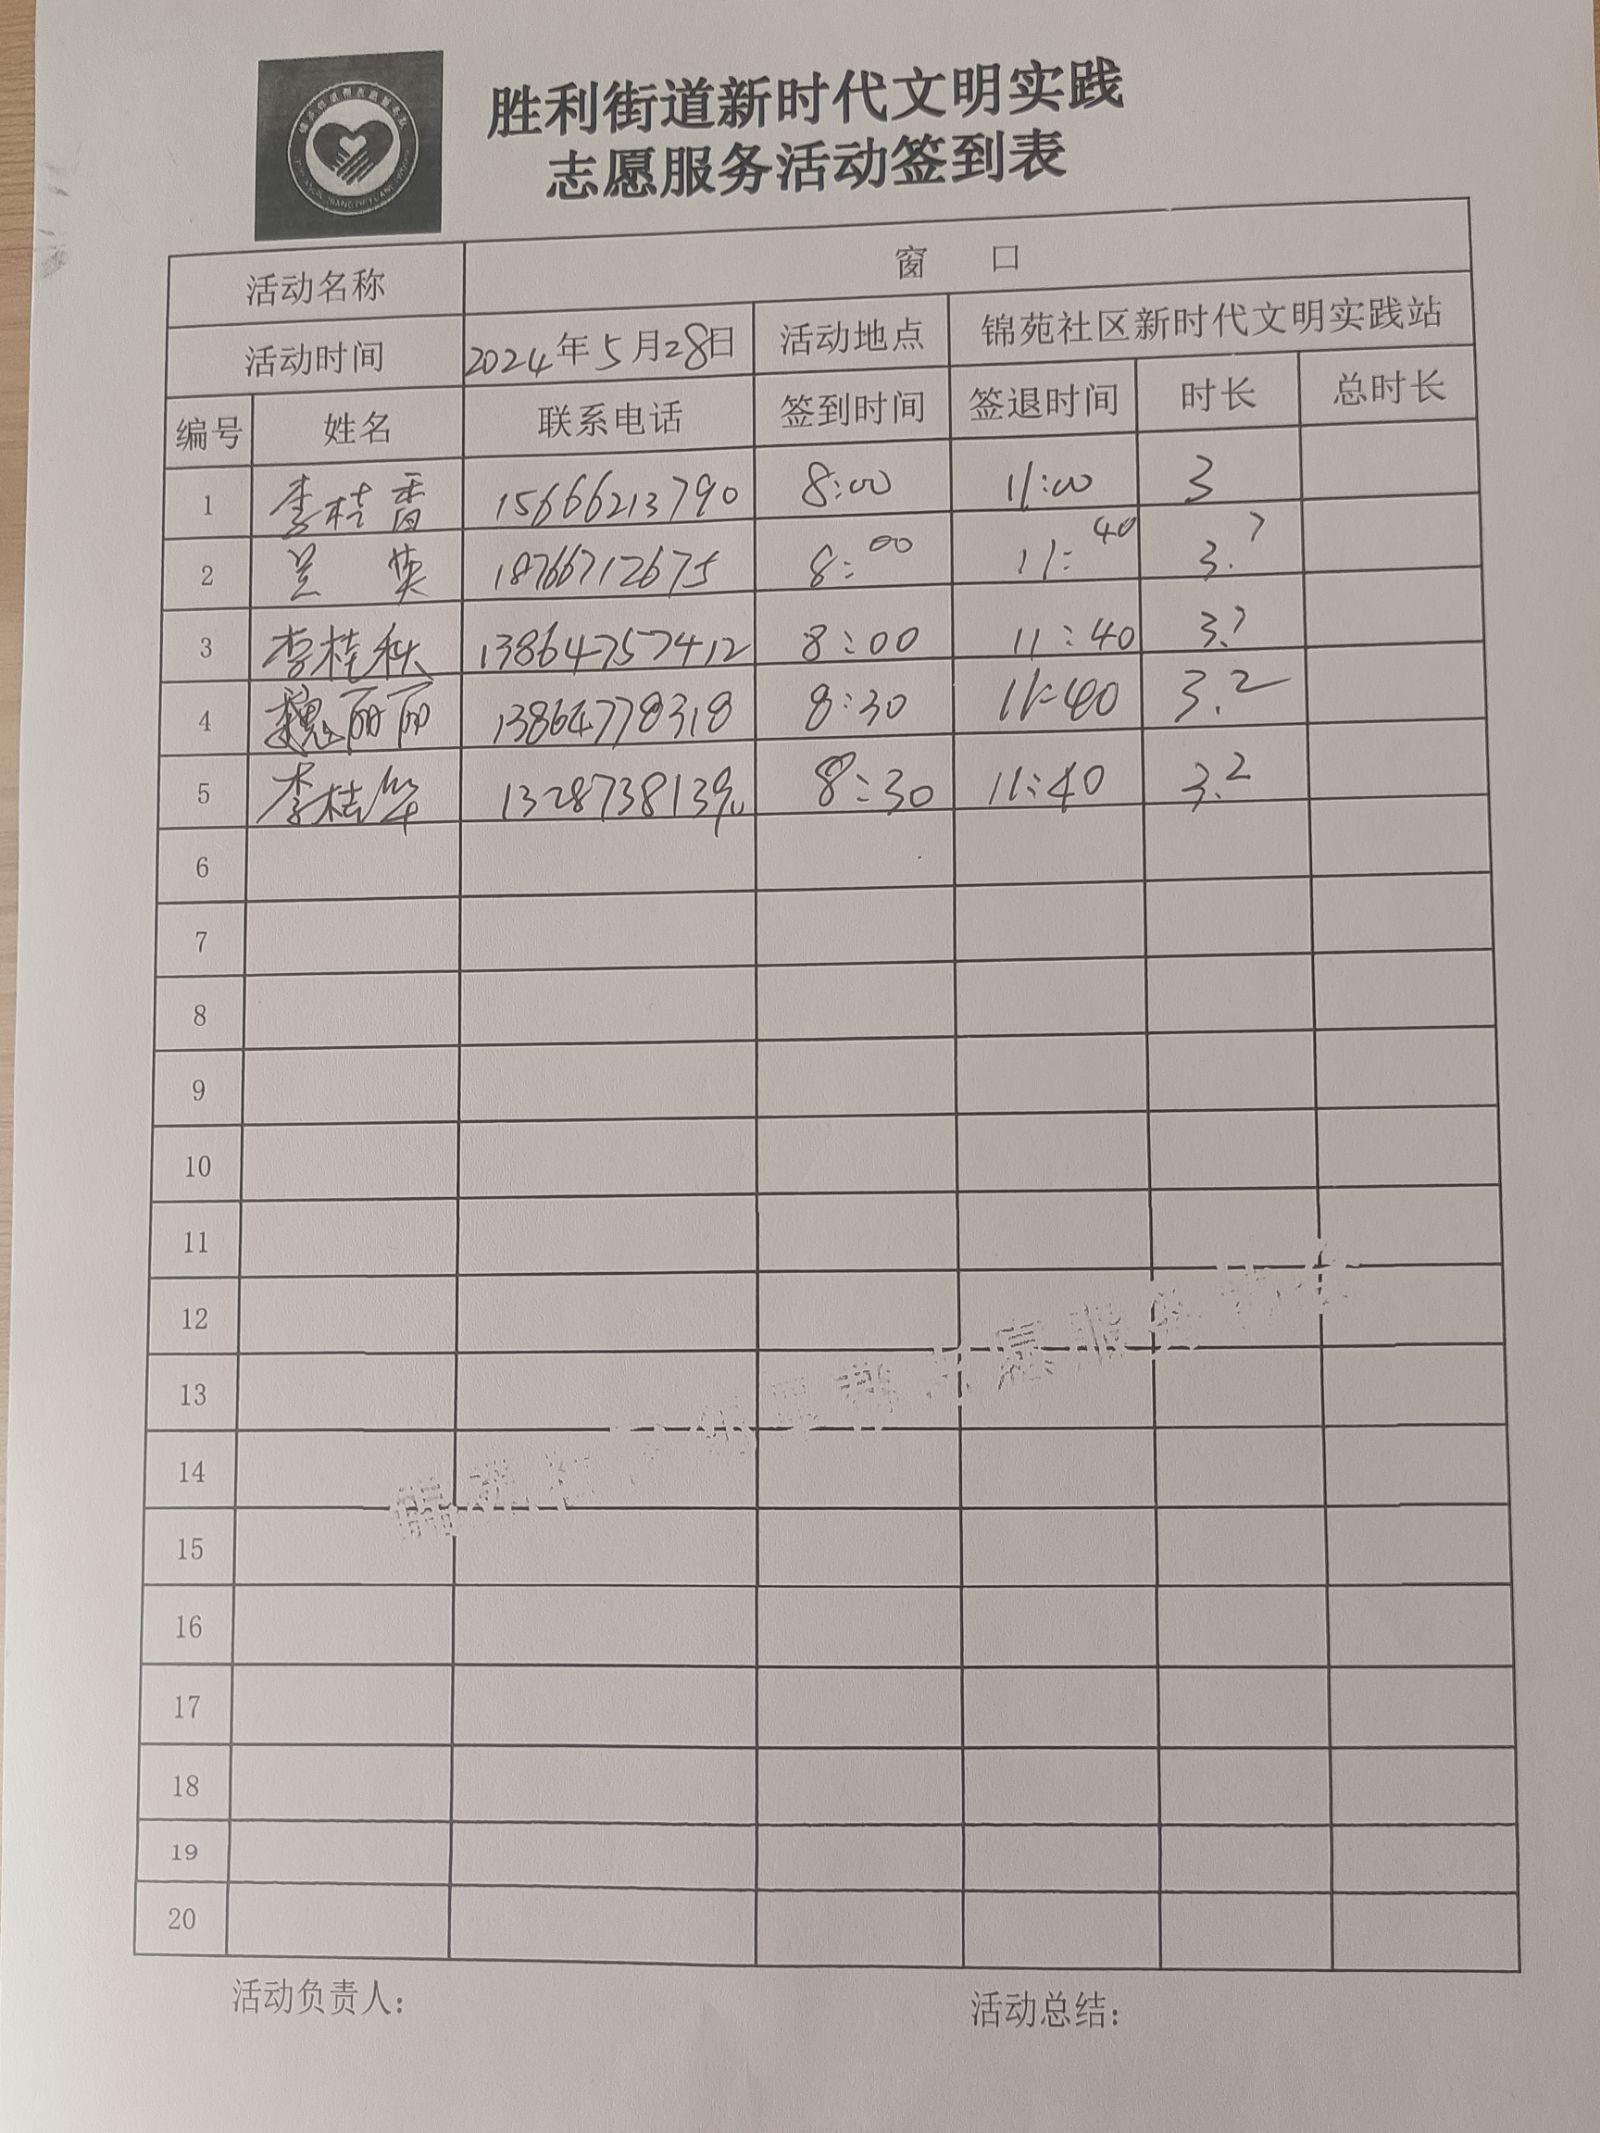 胜利街道新时代文明实践
志愿服务活动签到表
活动名称 窗 口
活动时间 2024年5月28日 活动地点 锦苑社区新时代文明实践站
编号 姓名 联系电话 签到时间 签退时间 时长 总时长
1 李桂香 15666213790 8:00 11:00 3
2 兰英 18766712675 8:00 11:40 3.7
3 李桂秋 13864757412 8:00 11:40 3.7
4 魏丽丽 13864778318 8:30 11:40 3.2
5 李桂华 13287381390 8:30 11:40 3.2
6
7
8
9
10
11
12
13
14
15
16
17
18
19
20
活动负责人: 活动总结: